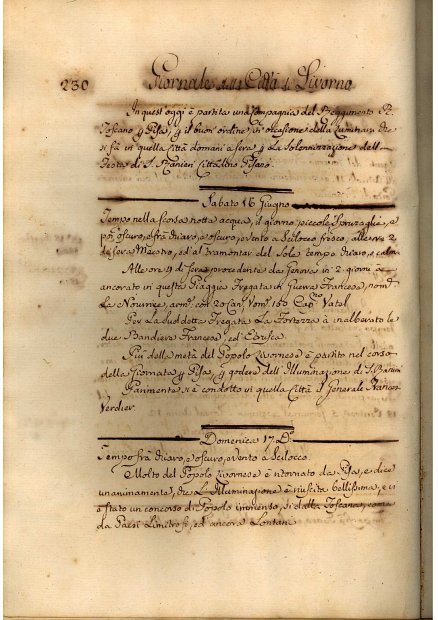 230 Giornale della Città di Livorno
In quest'oggi è partita una Compagnia del Reggimento R.
Toscano p Pisa, p il buon'ordine, in occasione della Luminara che
si fà in quella Città domani a sera p La Solennizzazione dell
Festa di S. Ranieri Cittadino Pisano.
Sabato 16 Giugno
Tempo nella scorsa notta acqua, il giorno piccole spruzaglie, e
poi oscuro, e frà chiaro, e oscuro, e vento a Scilocco fresco, alle ore 2
da sera Maestro, ed al tramontar del Sole tempo chiaro, e calma
Alle ore 9 di sera procedente da Genova in 2. giorni è
ancorato in questa Piaggia Fregata di Guerra Francese, nom
La armº con 20 Canⁱ Vomⁱ 160 Capⁿᵒ
Per La suddetta Fregata La Fortezza à inalberato le
due Bandiere Francese, ed Etrusca.
Più della metà del Popolo Livornese è partito nel corso
della Giornata p Pisa, p godere dell'Illuminazione di S. Ranieri
Parimente si è condotto in quella Città il Generale Francese
Verdier.
Domenica 17. Dº
Tempo frà chiaro, e oscuro, e vento a Scilocco.
Molto del Popolo Livornese è ritornato da Pisa, e dice
unanimamente, che L'Illuminazione è riuscita bellissima, e vi
è stato un concorso di Popolo immenso, sì dalla Toscana, come
da Paesi Limitrofi, ed ancora Lontani